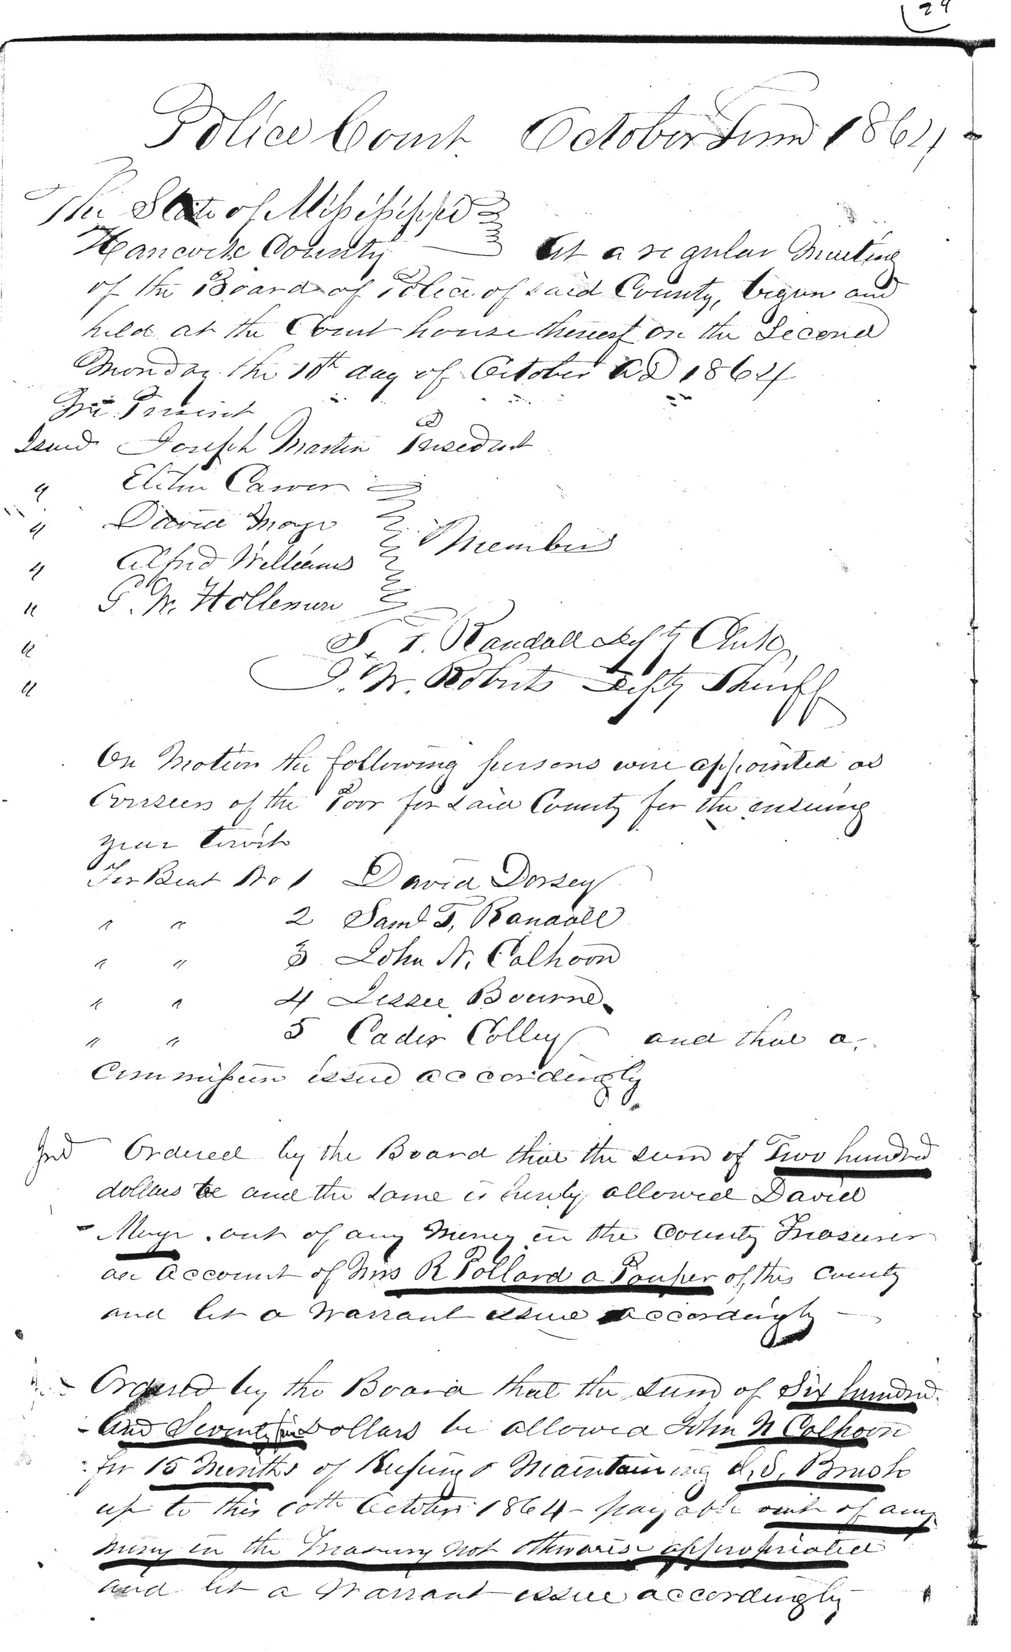 29
Police Court October Term 1864
The State of Mississippi
Hancock County At a regular Meeting
of the Board of Police of said County, begun and
held at the Court house thereof on the Second
Monday the 10th day of October AD 1864
Present
Issued Joseph Martin President
" Elihu Carver
" David Moye Members
" Alfred Williams
" G. W. Holleman
" S. T. Randall Depty Clerk
" J. W. Roberts Depty Sheriff
On Motion the following persons were appointed as
Overseers of the Poor for said County for the ensuing
year towit
For Beat No 1 David Dorsey
" " 2 Saml T. Randall
" " 3 John N. Calhoon
" " 4 Jessee Bourne
" " 5 Cader Colley and that a
Commission issue accordingly
Ordered by the Board that the sum of Two hundred
dollars be and the same is hereby allowed David
Moye out of any Money in the County Treasurer
on account of Mrs R Pollard a Pauper of this County
and let a Warrant issue accordingly
Ordered by the Board that the sum of Six hundred
and Seventy five Dollars be allowed John N Calhoon
for 15 Months of Keeping & Maintaining S. Brush
up to this 10th October 1864 - payable out of any
money in the Treasury not otherwise appropriated
and let a Warrant issue accordingly